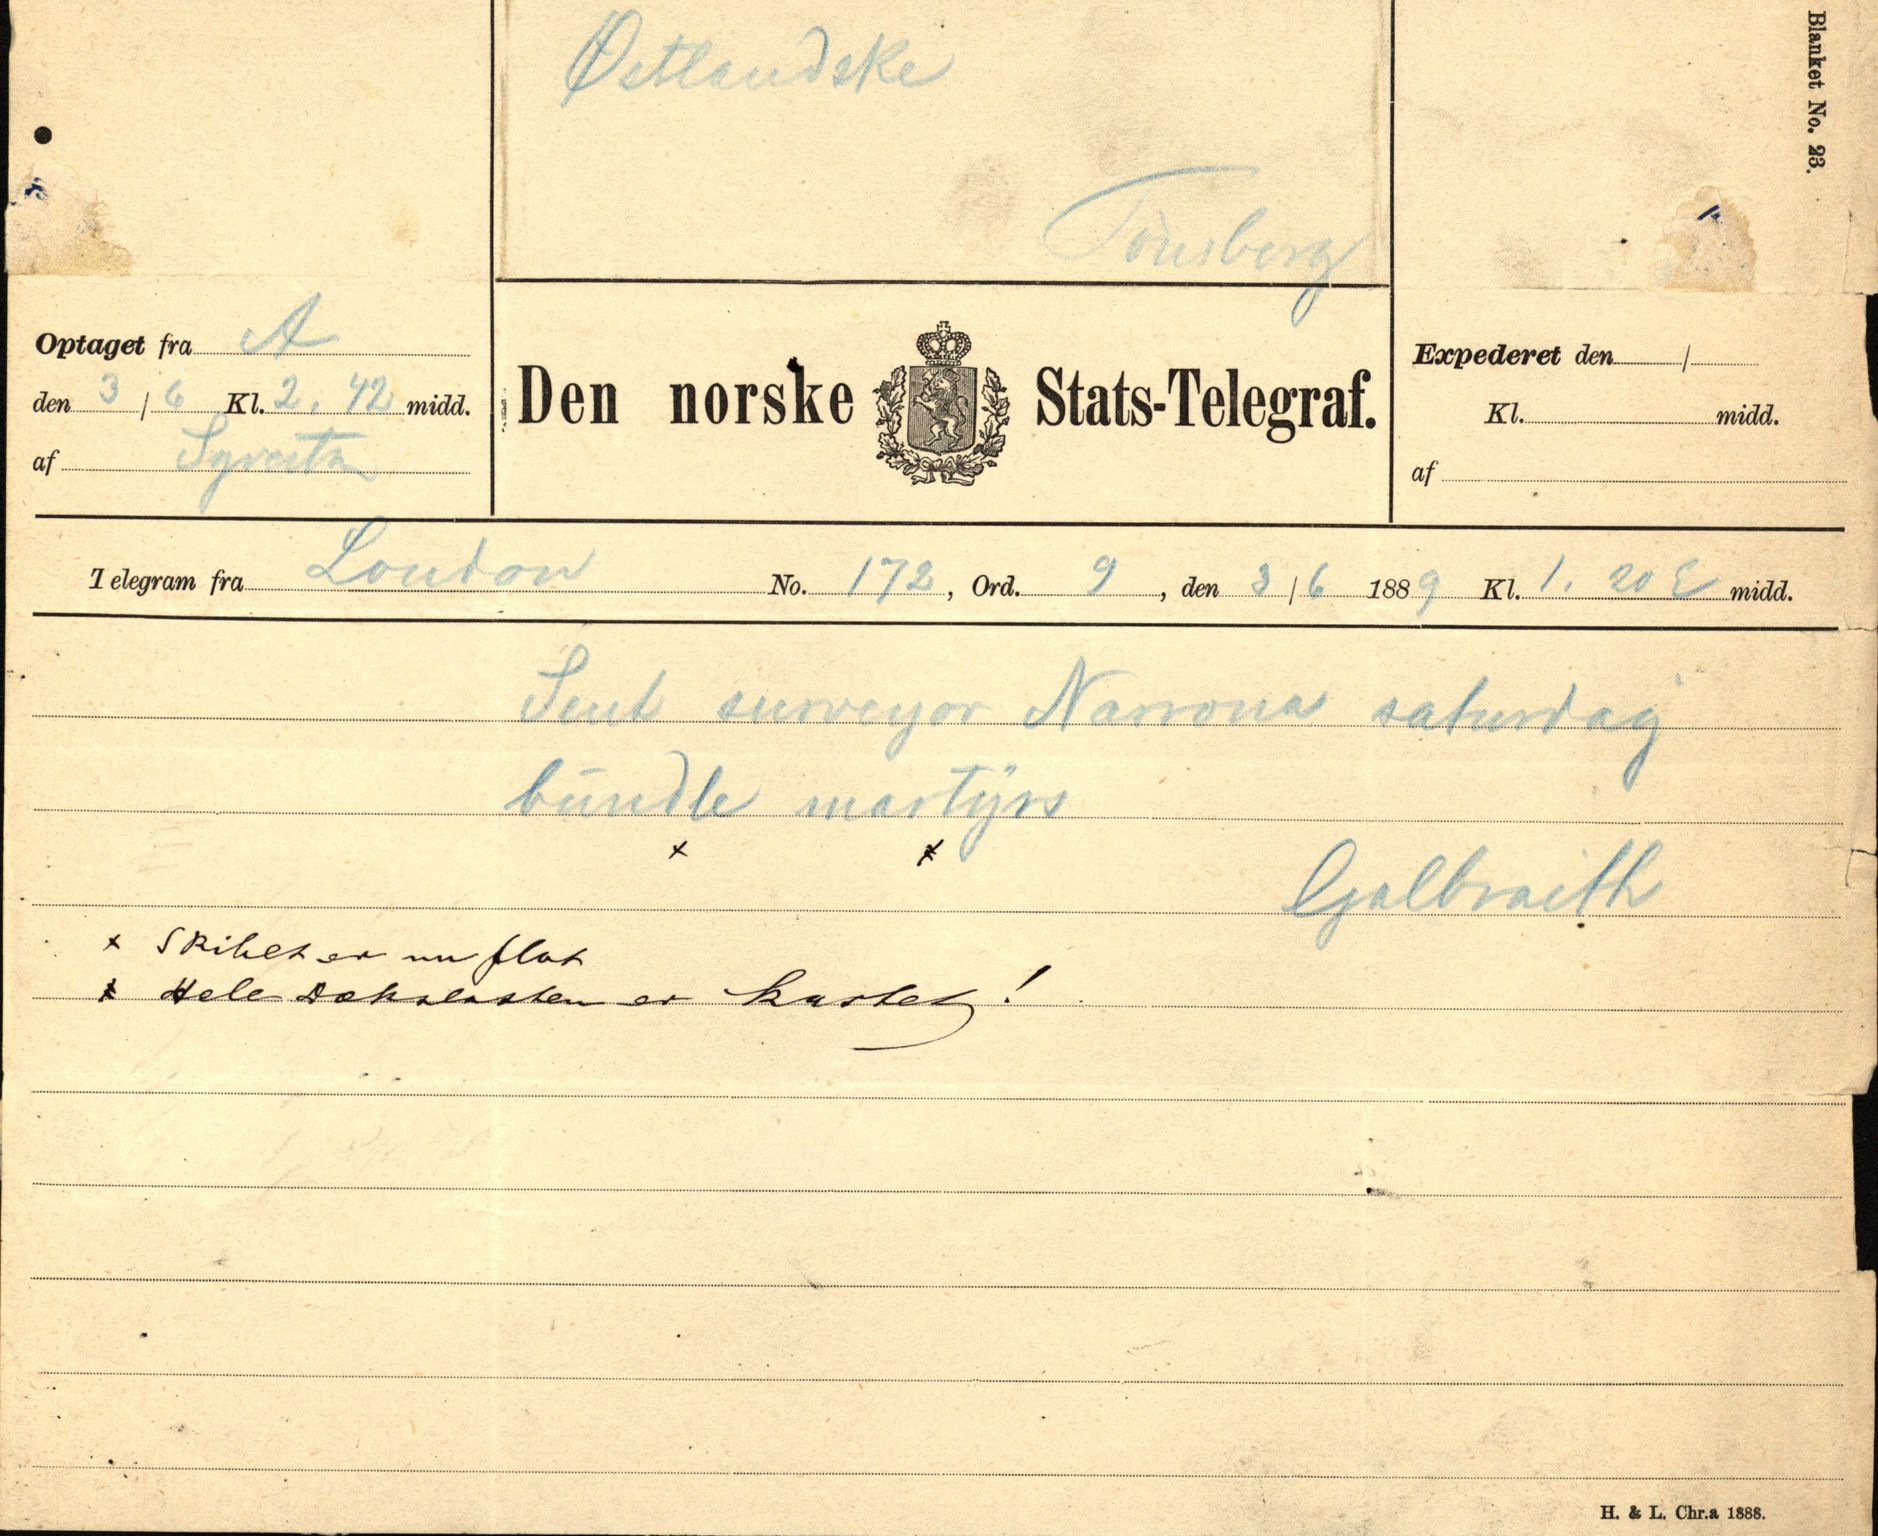 Blanket No. 23.
Østlandske
Tönsberg
Optaget fra A
den 3/6 Kl. 2.42 midd.
af
Den norske Stats-Telegraf.
Expederet den /
Kl. midd.
af
Telegram fra London No. 172, Ord. 9, den 3/6 1889 Kl. 1.20 E midd.
Sent surveyor Narrona saturday
bundle martyrs
x x
Galbraith
x Skibet er nu flot
x Hele Dækslasten er kastet!
H. & L. Chr.a 1888.